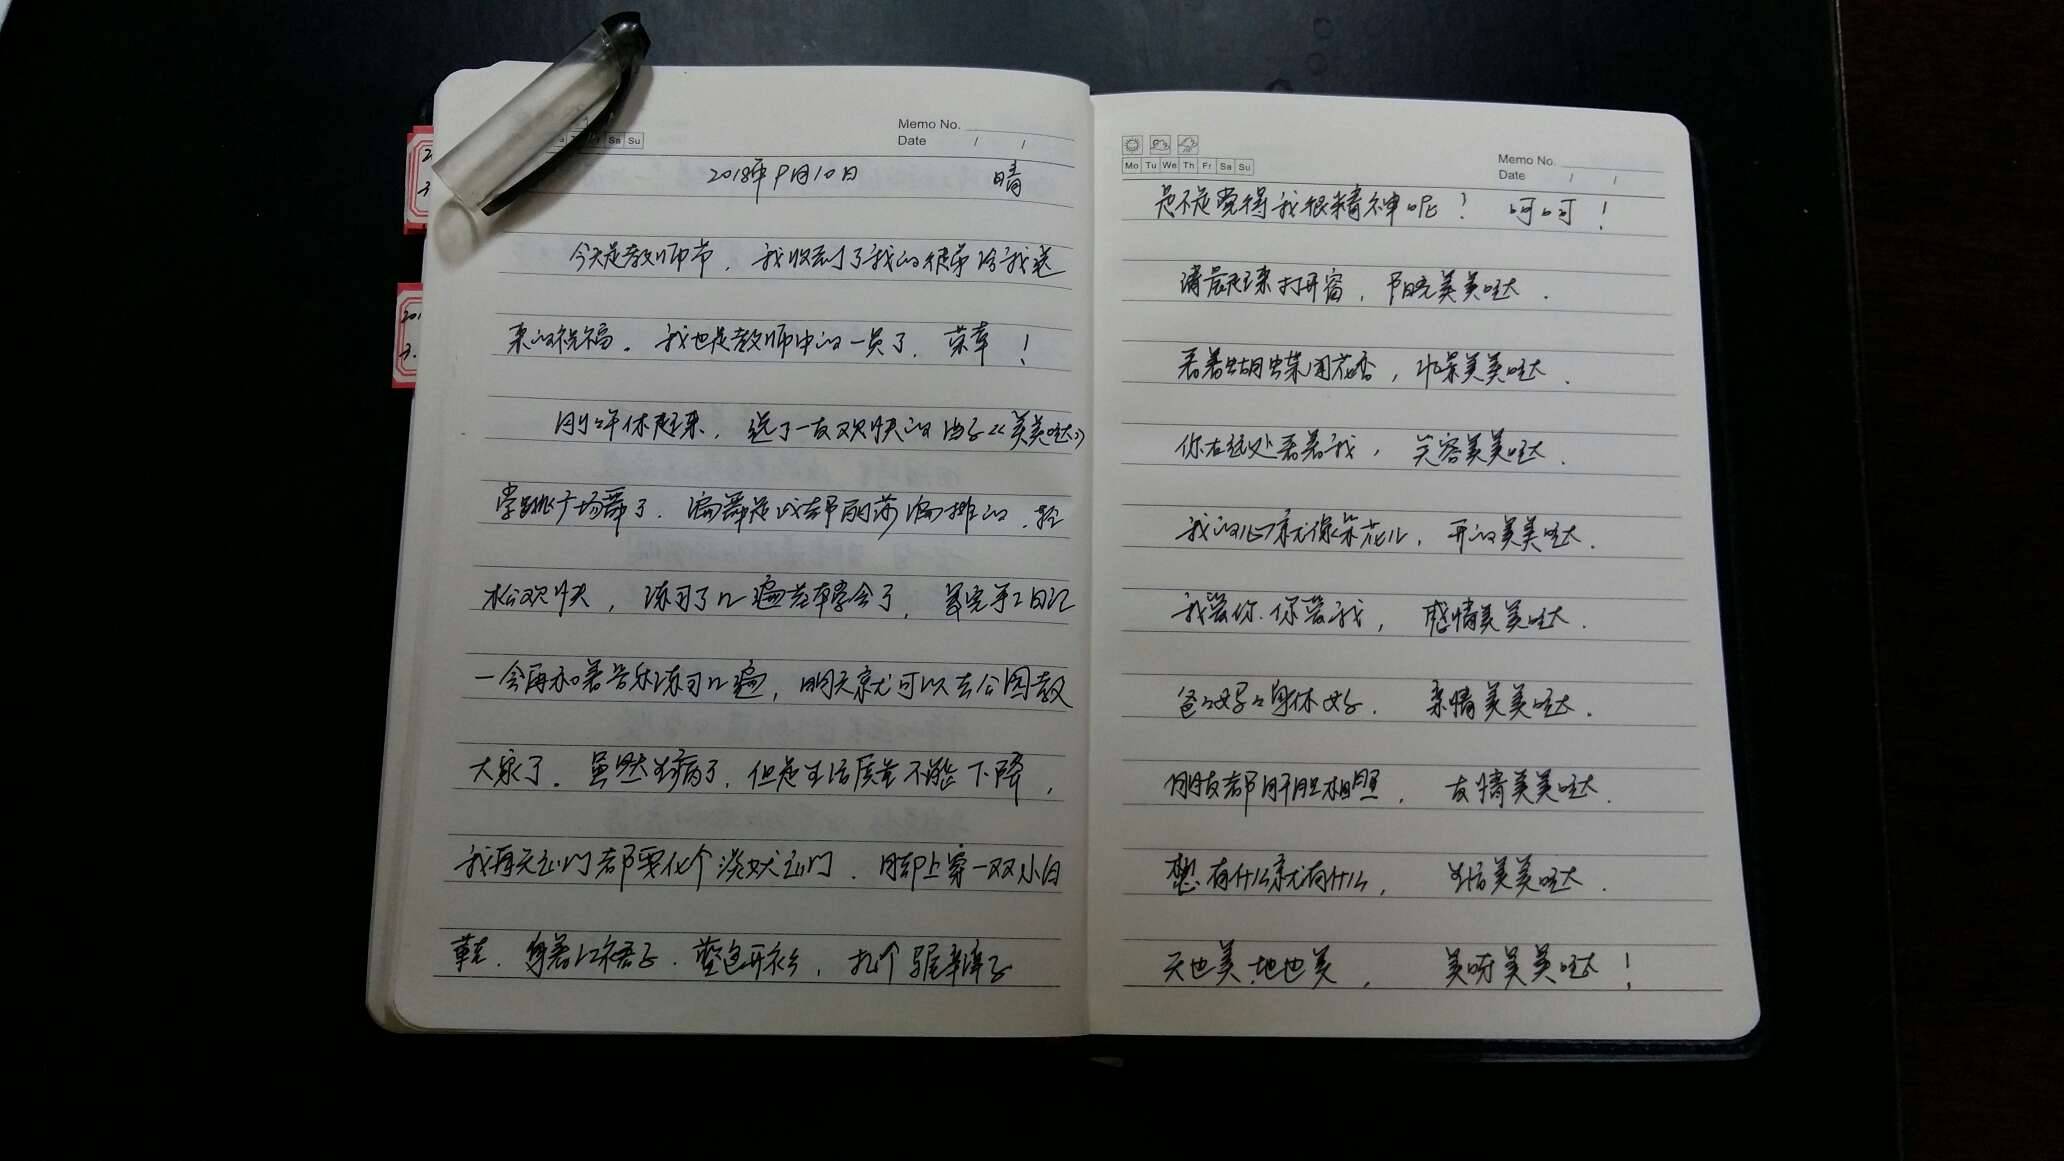 Sa Su
Memo No.
Date / /
2018年9月10日 晴
今天是教师节，我收到了我的徒弟给我送
来的祝福。我也是教师中的一员了，荣幸！
刚午休起来，选了一支欢快的曲子《美美哒》
学跳广场舞了，编舞是成都丽莎编排的，轻
松欢快，练习了几遍基本学会了，写完手工日记
一会再和着音乐练习几遍，明天就可以去公园教
大家了。虽然生病了，但是生活质量不能下降，
我每天出门都要化个淡妆出门，脚上穿一双小白
鞋，身着红裙子，蓝色开衫，扎个马尾辫子
Mo Tu We Th Fr Sa Su
Memo No.
Date / /
是不是觉得我很精神呢！呵呵！
清晨起来打开窗，阳光美美哒．
看着蝴蝶闻花香，水果美美哒．
你在远处看着我，笑容美美哒．
我的心就像朵花儿，开的美美哒．
我爱你．你爱我，感情美美哒．
爸爸妈妈身体好．亲情美美哒．
朋友都肝胆相照，友情美美哒．
想有什么就有什么，生活美美哒．
天也美．地也美，美呀美美哒！